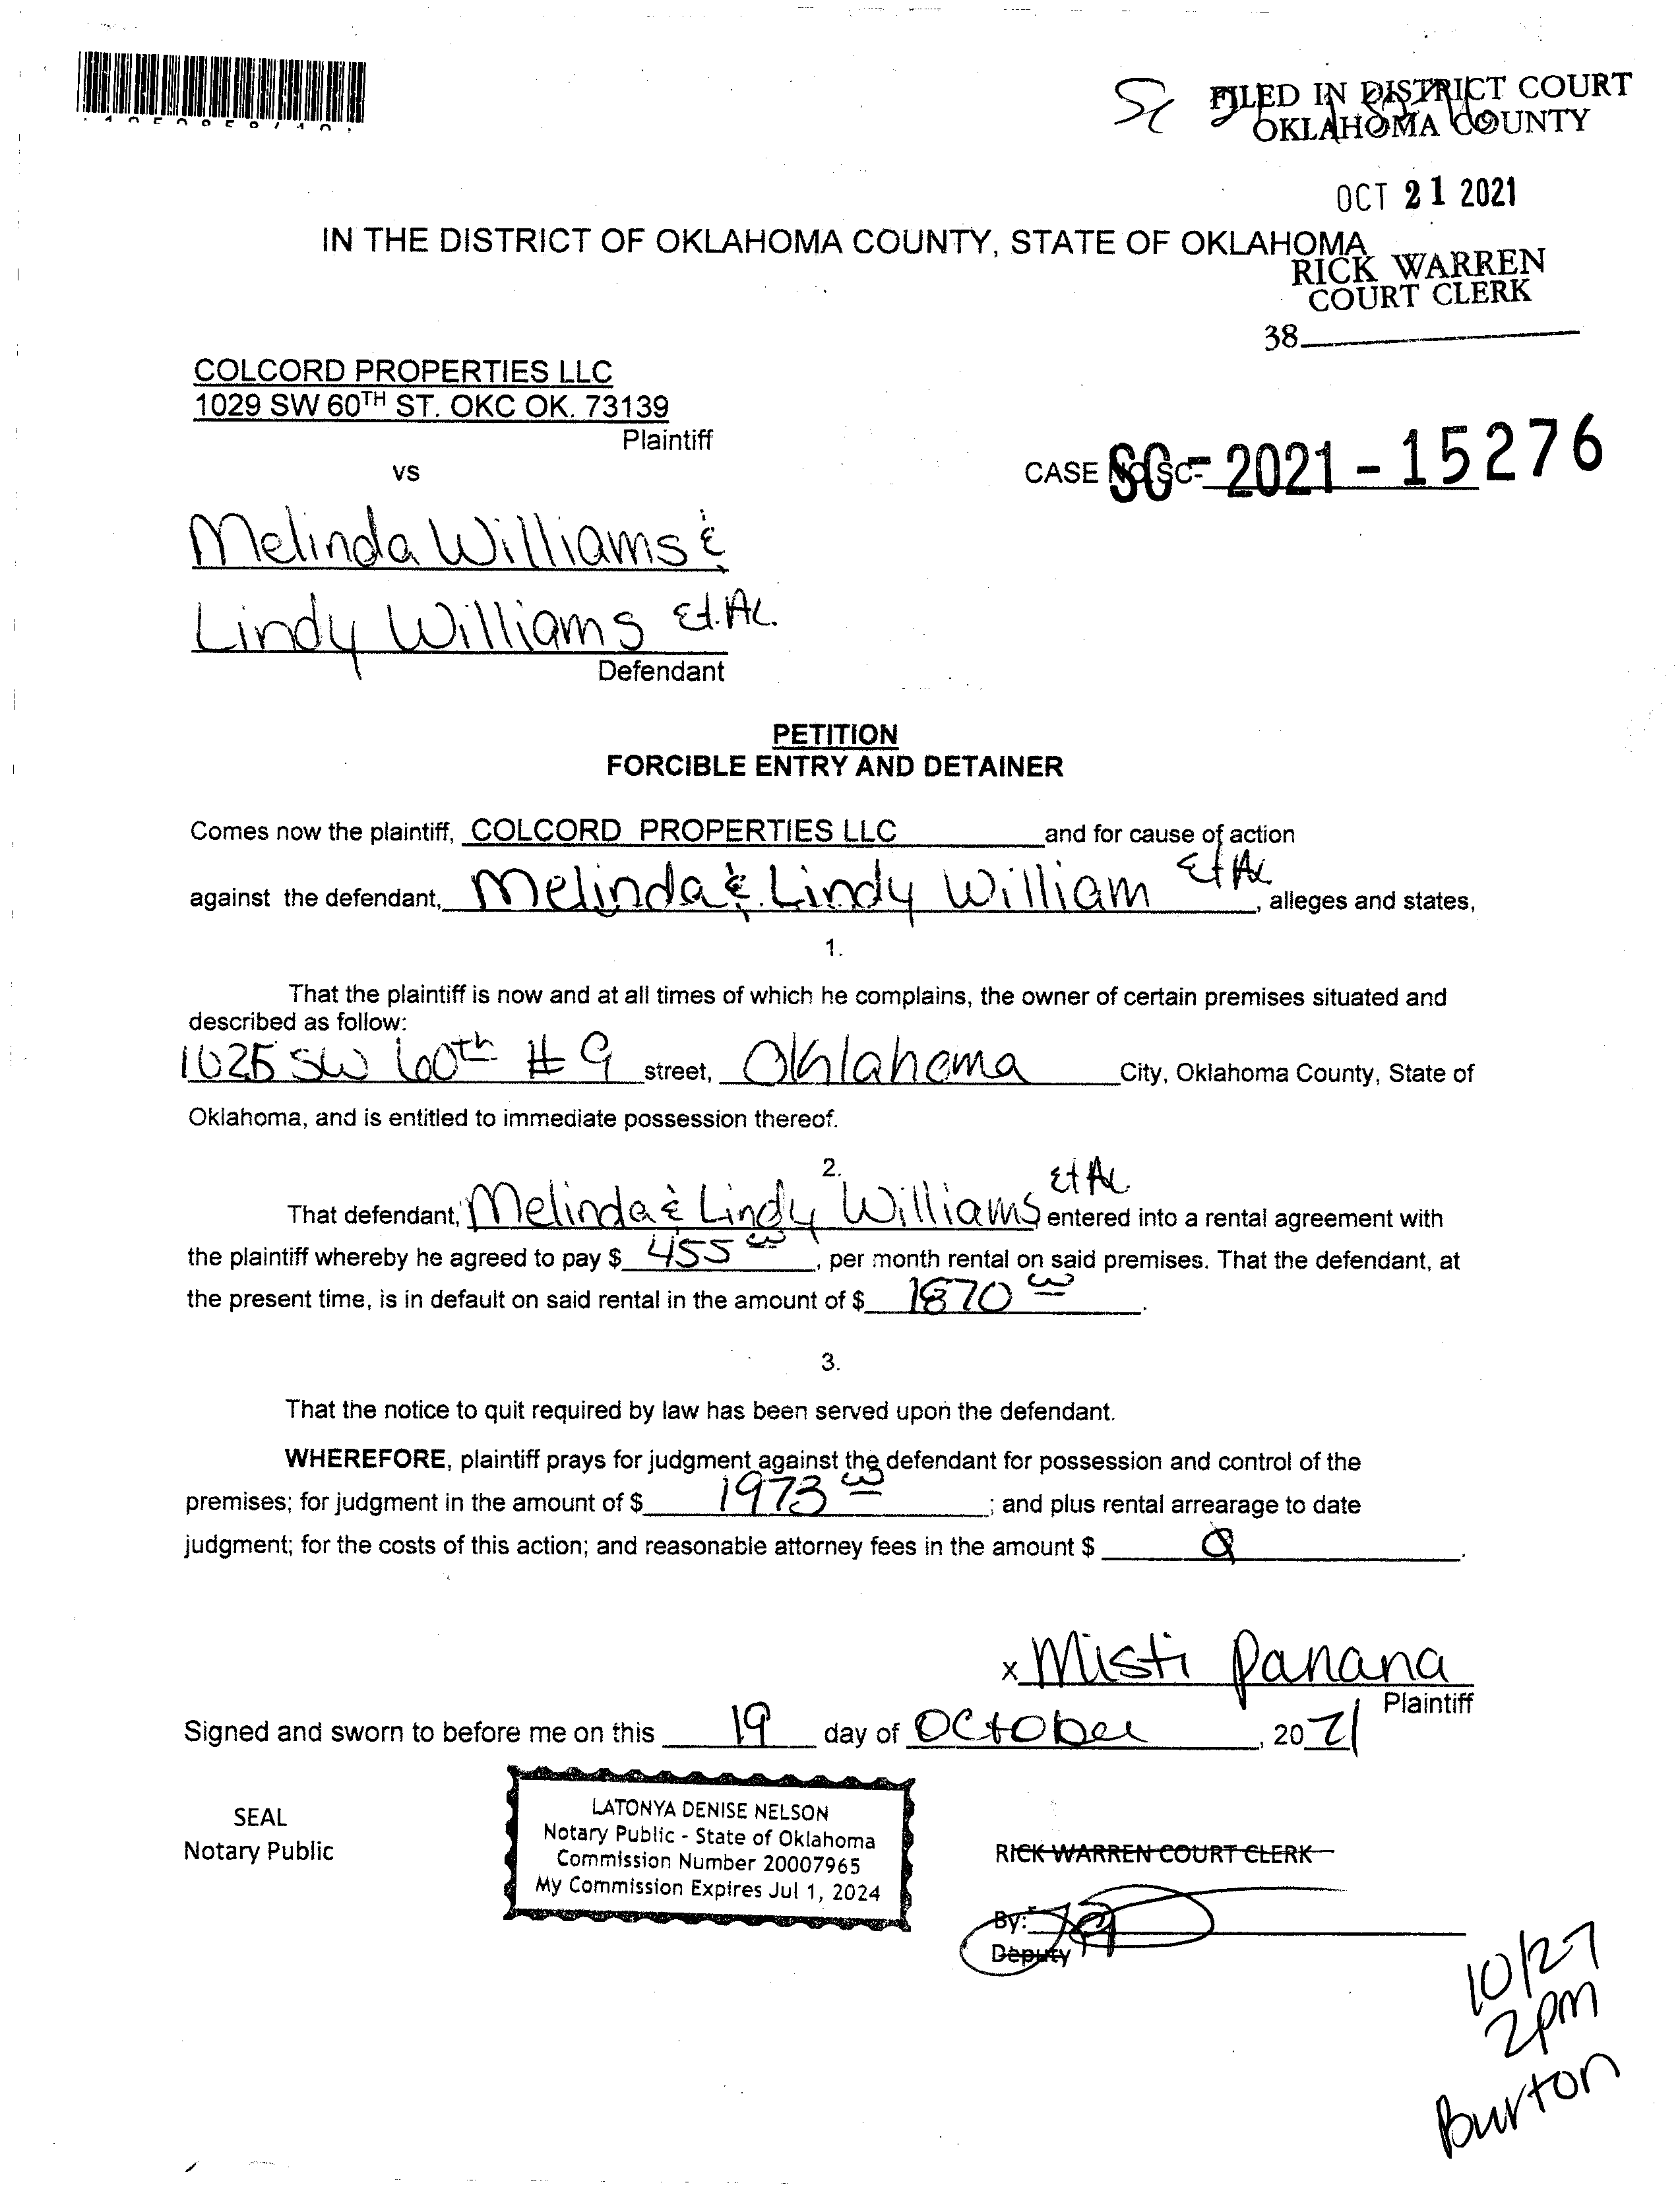 FILED IN DISTRICT COURT
OKLAHOMA COUNTY
OCT 21 2021
IN THE DISTRICT OF OKLAHOMA COUNTY, STATE OF OKLAHOMA
RICK WARREN
COURT CLERK
38
COLCORD PROPERTIES LLC
1029 SW 60TH ST. OKC OK. 73139
Plaintiff
vs
CASE NO. SC- SC-2021-15276
Melinda Williams &
Lindy Williams Et. AL.
Defendant
PETITION
FORCIBLE ENTRY AND DETAINER
Comes now the plaintiff, COLCORD PROPERTIES LLC and for cause of action
against the defendant, Melinda & Lindy William Et AL, alleges and states,
1.
That the plaintiff is now and at all times of which he complains, the owner of certain premises situated and
described as follow:
1025 SW 60th # 9 street, Oklahoma City, Oklahoma County, State of
Oklahoma, and is entitled to immediate possession thereof.
2.
That defendant, Melinda & Lindy Williams Et AL entered into a rental agreement with
the plaintiff whereby he agreed to pay $ 455 00, per month rental on said premises. That the defendant, at
the present time, is in default on said rental in the amount of $ 1870 00.
3.
That the notice to quit required by law has been served upon the defendant.
WHEREFORE, plaintiff prays for judgment against the defendant for possession and control of the
premises; for judgment in the amount of $ 1973 00; and plus rental arrearage to date
judgment; for the costs of this action; and reasonable attorney fees in the amount $ 0.
x Misti Panana
Plaintiff
Signed and sworn to before me on this 19 day of October, 2021
SEAL
Notary Public
LATONYA DENISE NELSON
Notary Public - State of Oklahoma
Commission Number 20007965
My Commission Expires Jul 1, 2024
RICK WARREN COURT CLERK
By:
Deputy
10/27
2pm
Burton